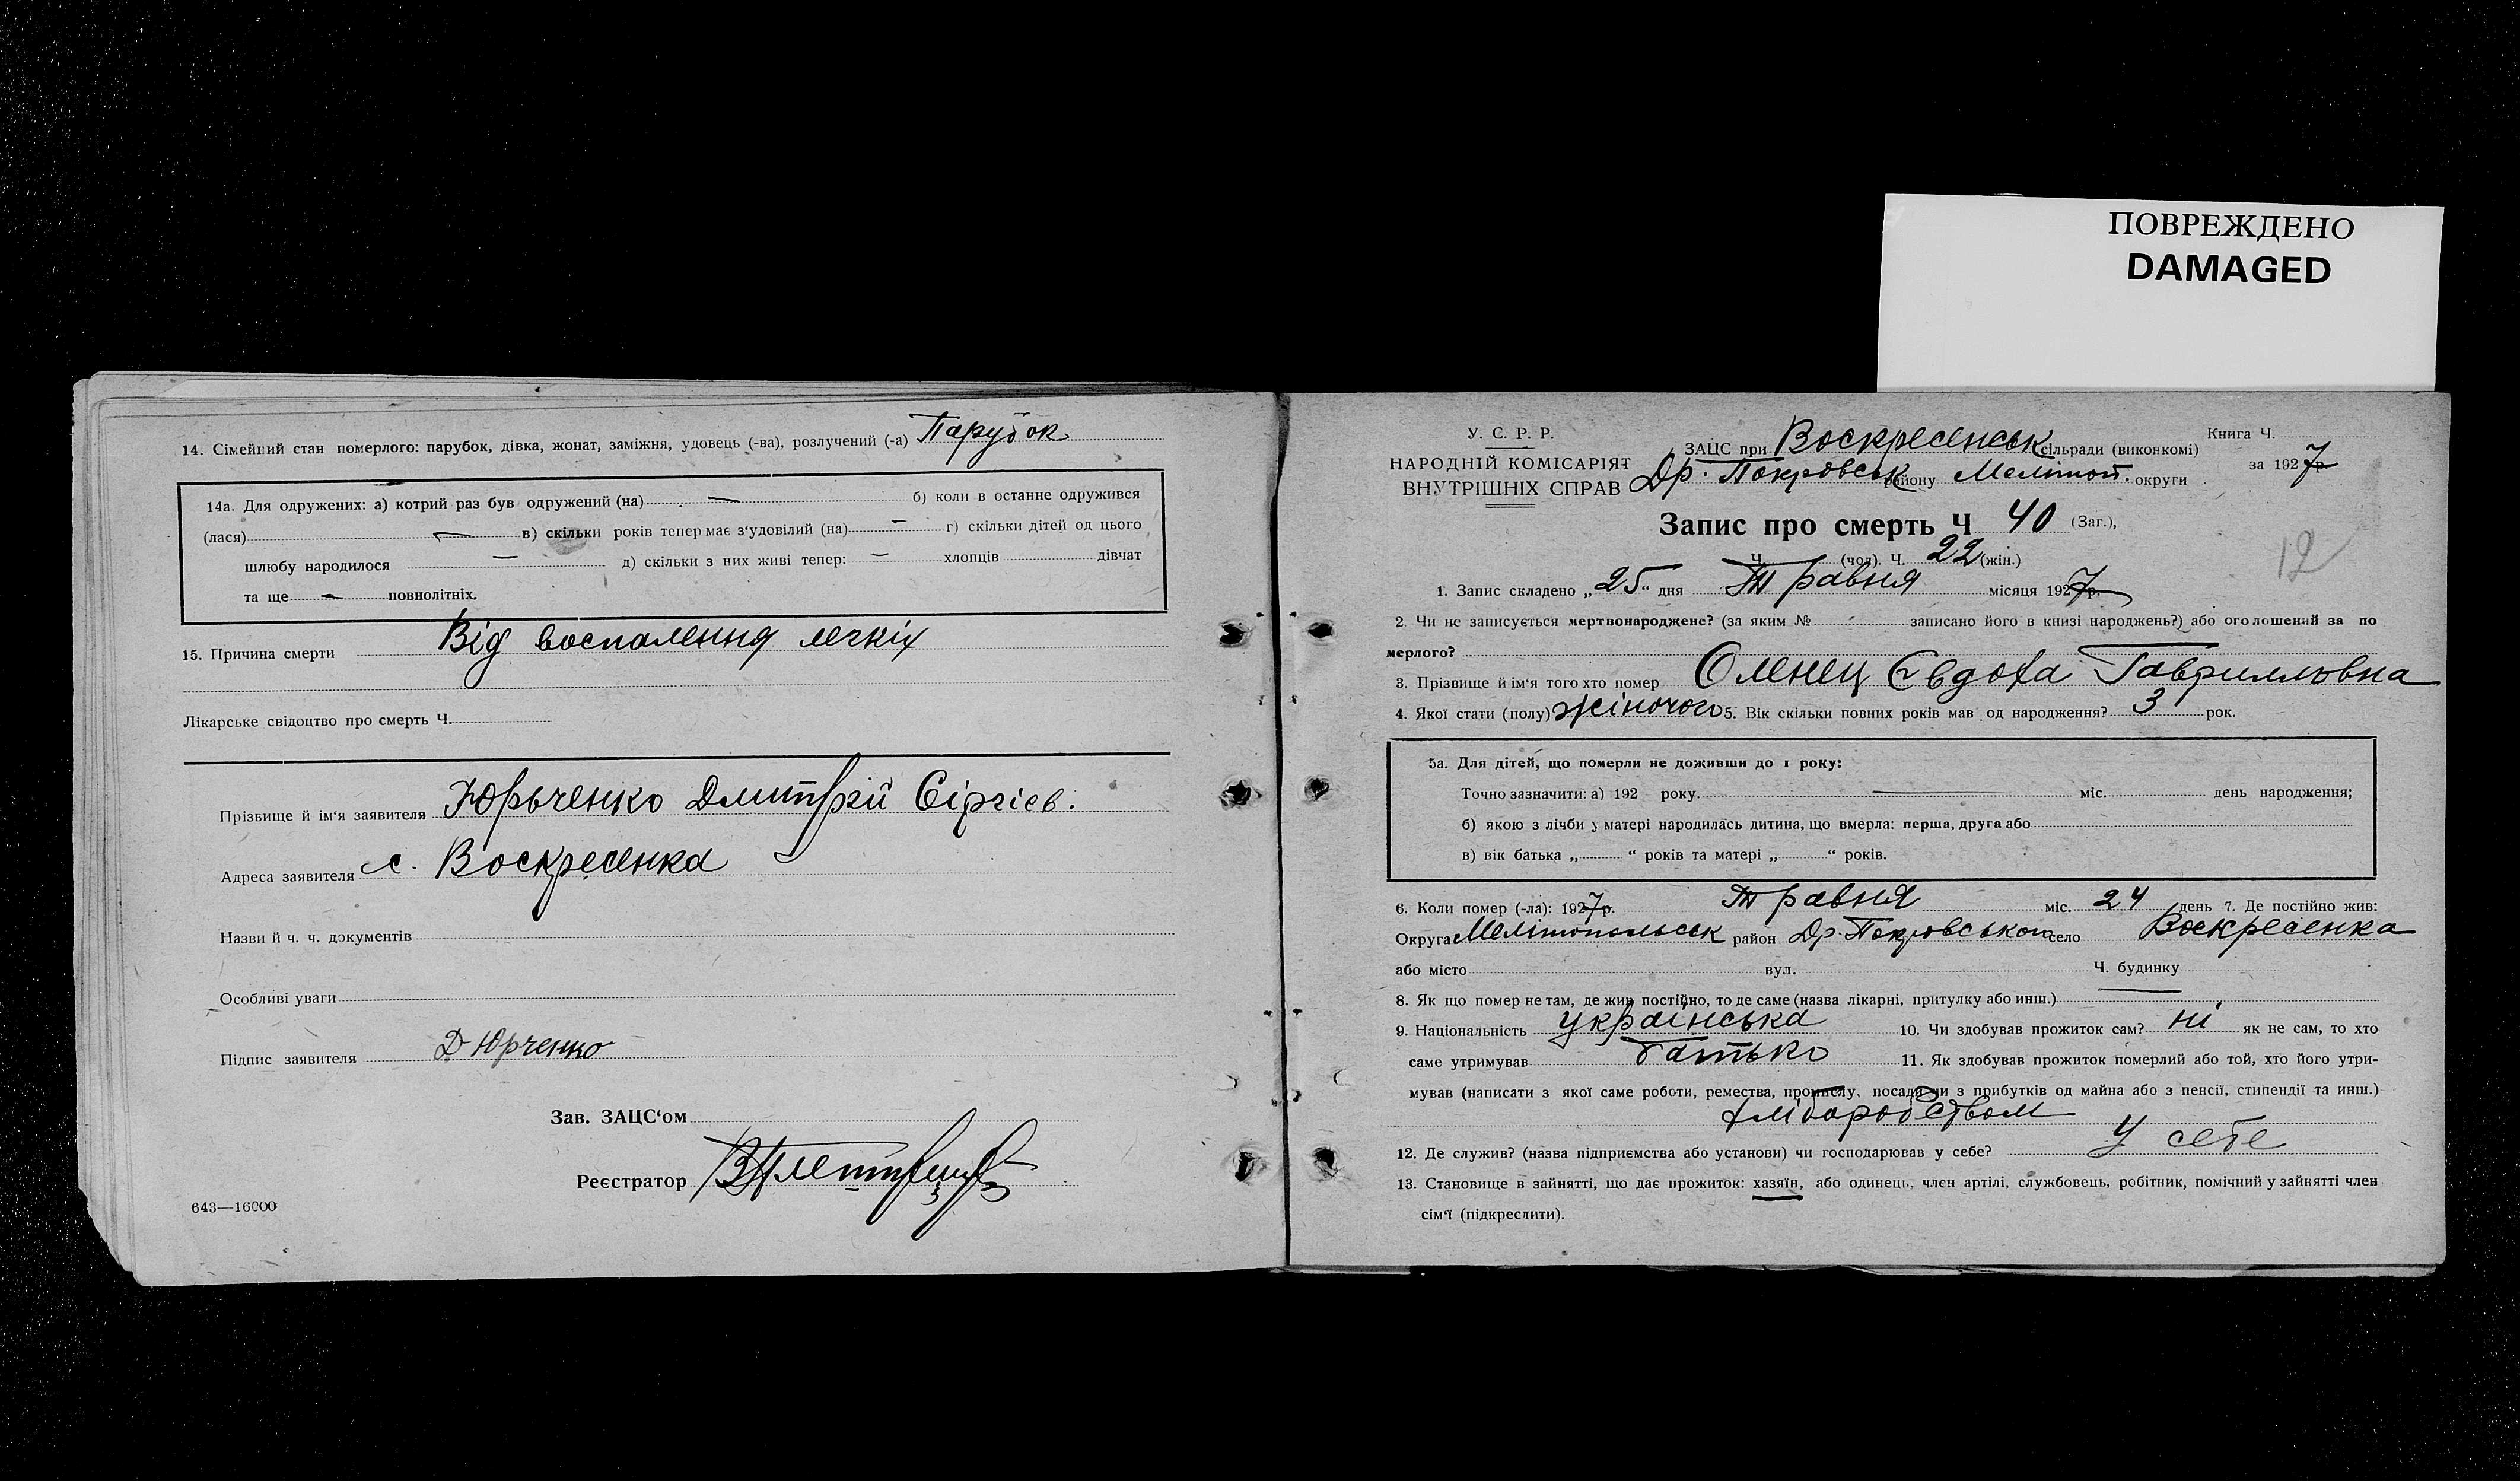 ПОВРЕЖДЕНО
DAMAGED
14. Сімейний стан померлого: парубок, дівка, жонат, заміжня, удовець (-ва), розлучений (-а) Парубок
14а. Для одружених: а) котрий раз був одружений (на) — б) коли в останне одружився
(лася) — в) скільки років тепер має з'удовілий (на) — г) скільки дітей од цього
шлюбу народилося — д) скільки з них живі тепер: — хлопців дівчат
та ще — повнолітніх.
15. Причина смерти Від воспалення легкіх
Лікарське свідоцтво про смерть Ч.
Прізвище й ім'я заявителя Юрьченко Дмитрій Сіргієв.
Адреса заявителя с. Воскресенка
Назви й ч. ч. документів
Особливі уваги
Підпис заявителя Д Юрченко
Зав. ЗАЦС'ом
Реєстратор
643—16000
У. С. Р. Р.
НАРОДНІЙ КОМІСАРІЯТ
ВНУТРІШНІХ СПРАВ
ЗАЦС при Воскресенськ сільради (виконкомі)
Книга Ч.
Др. Покровськ району Мелітоп. округи
за 1927 р.
Запис про смерть Ч 40 (Заг.),
Ч. (чол). Ч. 22 (жін.)
12
1. Запис складено „25“ дня Травня місяця 1927 р.
2. Чи не записується мертвонароджене? (за яким № записано його в книзі народжень?) або оголошений за по
мерлого?
3. Прізвище й ім'я того хто помер Оленец Євдоха Гаврилловна
4. Якої стати (полу) жіночого 5. Вік скільки повних років мав од народження? 3 рок.
5а. Для дітей, що померли не доживши до 1 року:
Точно зазначити: а) 192 року. — міс. день народження;
б) якою з лічби у матері народилась дитина, що вмерла: перша, друга або
в) вік батька „ “ років та матері „ “ років.
6. Коли помер (-ла): 1927 р. Травня міс. 24 день 7. Де постійно жив:
Округа Мелітопольськ район Др. Покровського село Воскресенка
або місто вул. Ч. будинку
8. Як що помер не там, де жив постійно, то де саме (назва лікарні, притулку або инш.) —
9. Національність українська 10. Чи здобував прожиток сам? ні як не сам, то хто
саме утримував батько 11. Як здобував прожиток померлий або той, хто його утри-
мував (написати з якої саме роботи, ремества, промислу, посади чи з прибутків од майна або з пенсії, стипендії та инш.)
хлібаробством
12. Де служив? (назва підприємства або установи) чи господарював у себе? У себе
13. Становище в зайнятті, що дає прожиток: хазяїн, або одинець, член артілі, службовець, робітник, помічний у зайнятті член
сім'ї (підкреслити).